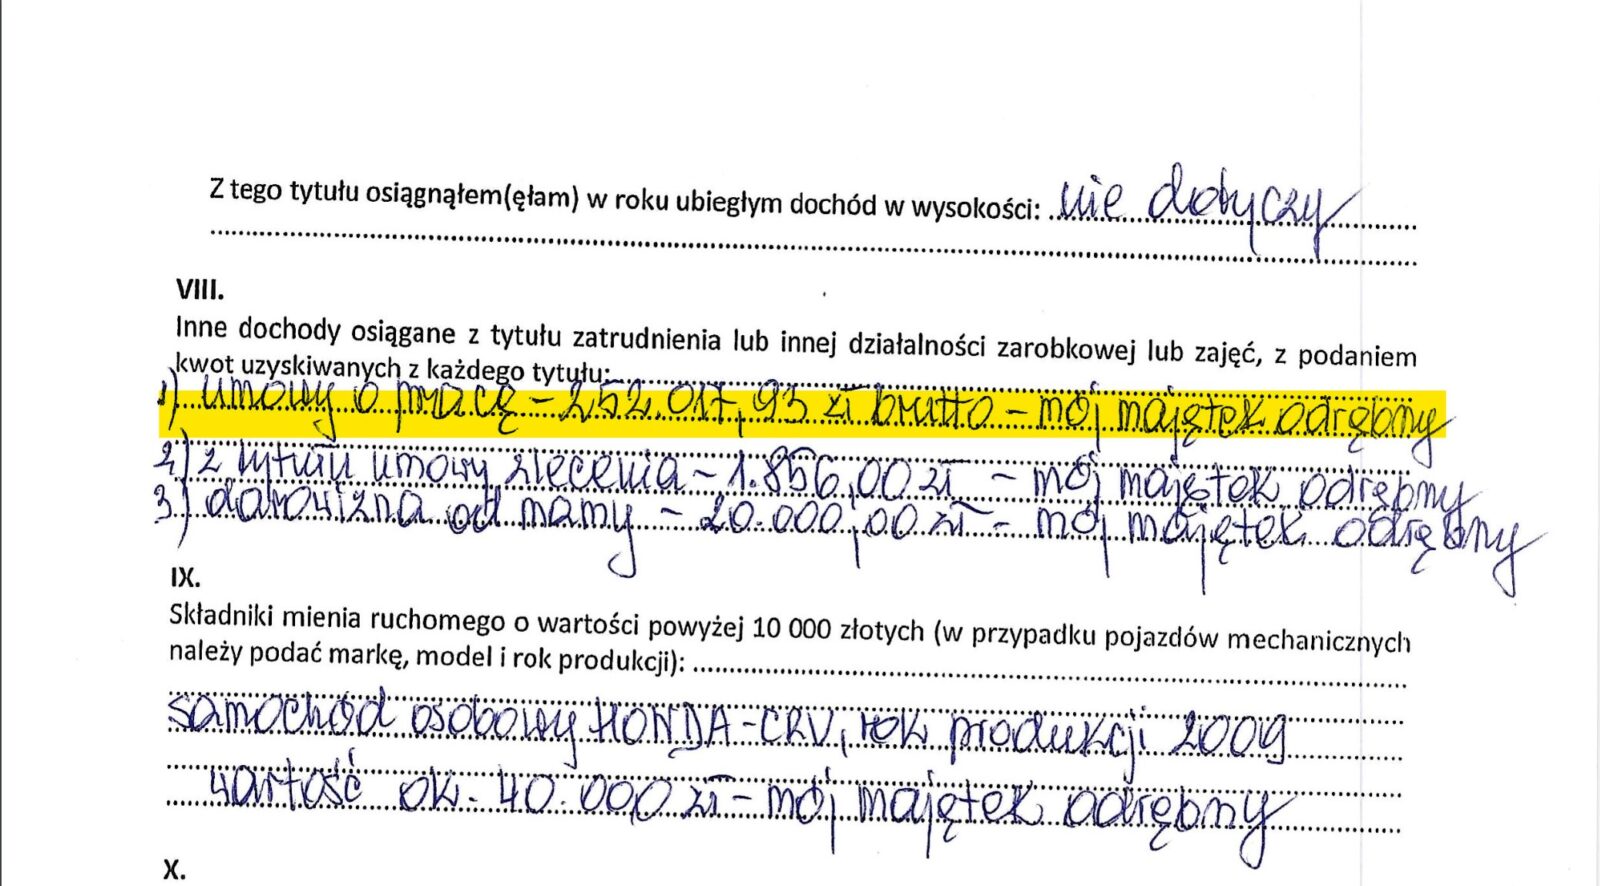 Z tego tytułu osiągnąłem(ęłam) w roku ubiegłym dochód w wysokości: nie dotyczy
VIII.
Inne dochody osiągane z tytułu zatrudnienia lub innej działalności zarobkowej lub zajęć, z podaniem
kwot uzyskiwanych z każdego tytułu:
1) umowy o pracę – 252.017,93 zł brutto – mój majętek odrębny
2) z tytułu umowy zlecenia – 1.856,00 zł – mój majętek odrębny
3) darowizna od mamy – 20.000,00 zł – mój majętek odrębny
IX.
Składniki mienia ruchomego o wartości powyżej 10 000 złotych (w przypadku pojazdów mechanicznych
należy podać markę, model i rok produkcji):
samochód osobowy HONDA-CRV, rok produkcji 2009
wartość ok. 40.000 zł – mój majętek odrębny
X.